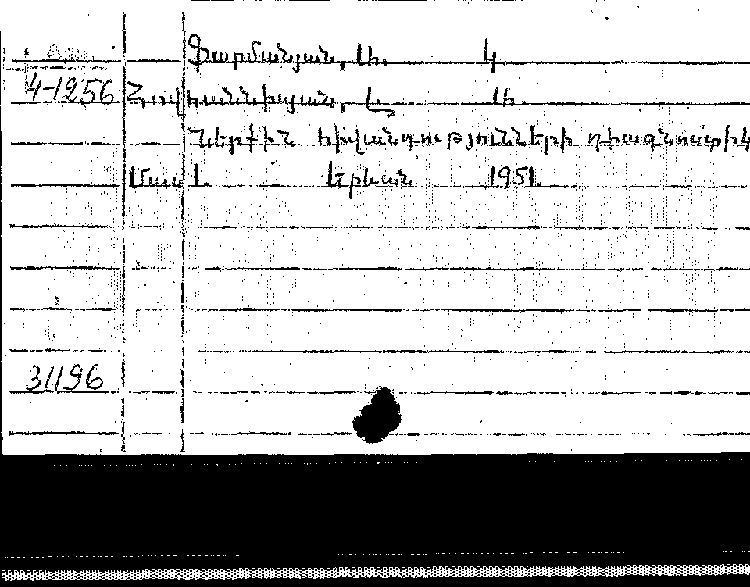 Ֆարմանյան, Ա. և
4-1256 Հովհաննիսյան, Լ. Ա.
Ներքին հիվանդությունների դիագնոստիկ
Մաս 1. Երևան 1951
31196